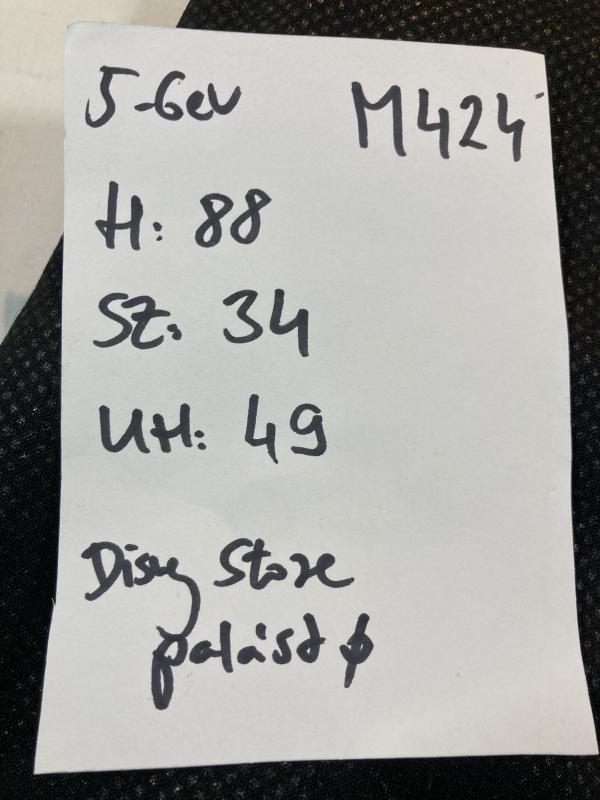 5-6év M424
H: 88
SZ: 34
UH: 49
Disny Store
palást ϕ